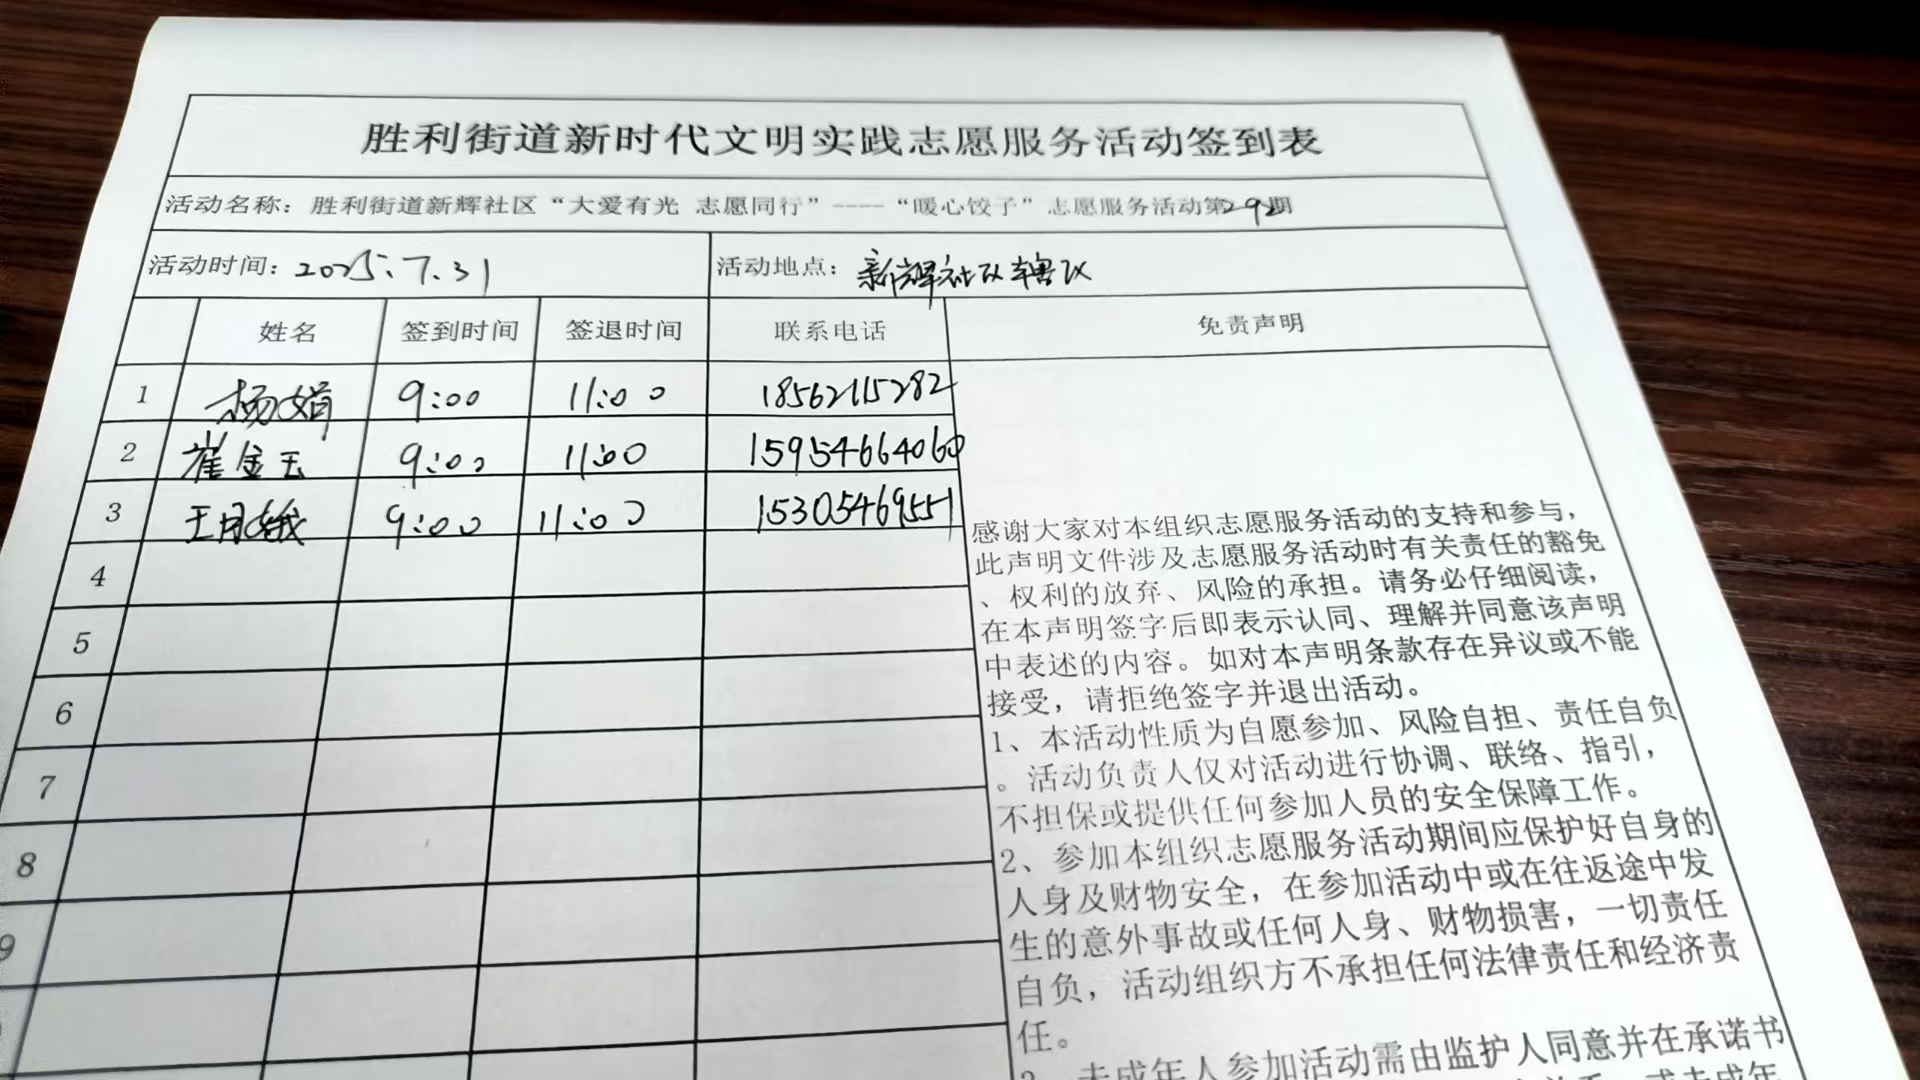 胜利街道新时代文明实践志愿服务活动签到表
活动名称：胜利街道新辉社区“大爱有光 志愿同行”----“暖心饺子”志愿服务活动第292期
活动时间：2025.7.31 活动地点：新辉社区辖区
姓名 签到时间 签退时间 联系电话 免责声明
1 杨娟 9:00 11:00 18562115282
2 崔金玉 9:00 11:00 15954664060
3 王月娥 9:00 11:00 15305469551
4
5
6
7
8
9
感谢大家对本组织志愿服务活动的支持和参与，
此声明文件涉及志愿服务活动时有关责任的豁免
、权利的放弃、风险的承担。请务必仔细阅读，
在本声明签字后即表示认同、理解并同意该声明
中表述的内容。如对本声明条款存在异议或不能
接受，请拒绝签字并退出活动。
1、本活动性质为自愿参加、风险自担、责任自负
。活动负责人仅对活动进行协调、联络、指引，
不担保或提供任何参加人员的安全保障工作。
2、参加本组织志愿服务活动期间应保护好自身的
人身及财物安全，在参加活动中或在往返途中发
生的意外事故或任何人身、财物损害，一切责任
自负，活动组织方不承担任何法律责任和经济责
任。
3、未成年人参加活动需由监护人同意并在承诺书
或未成年